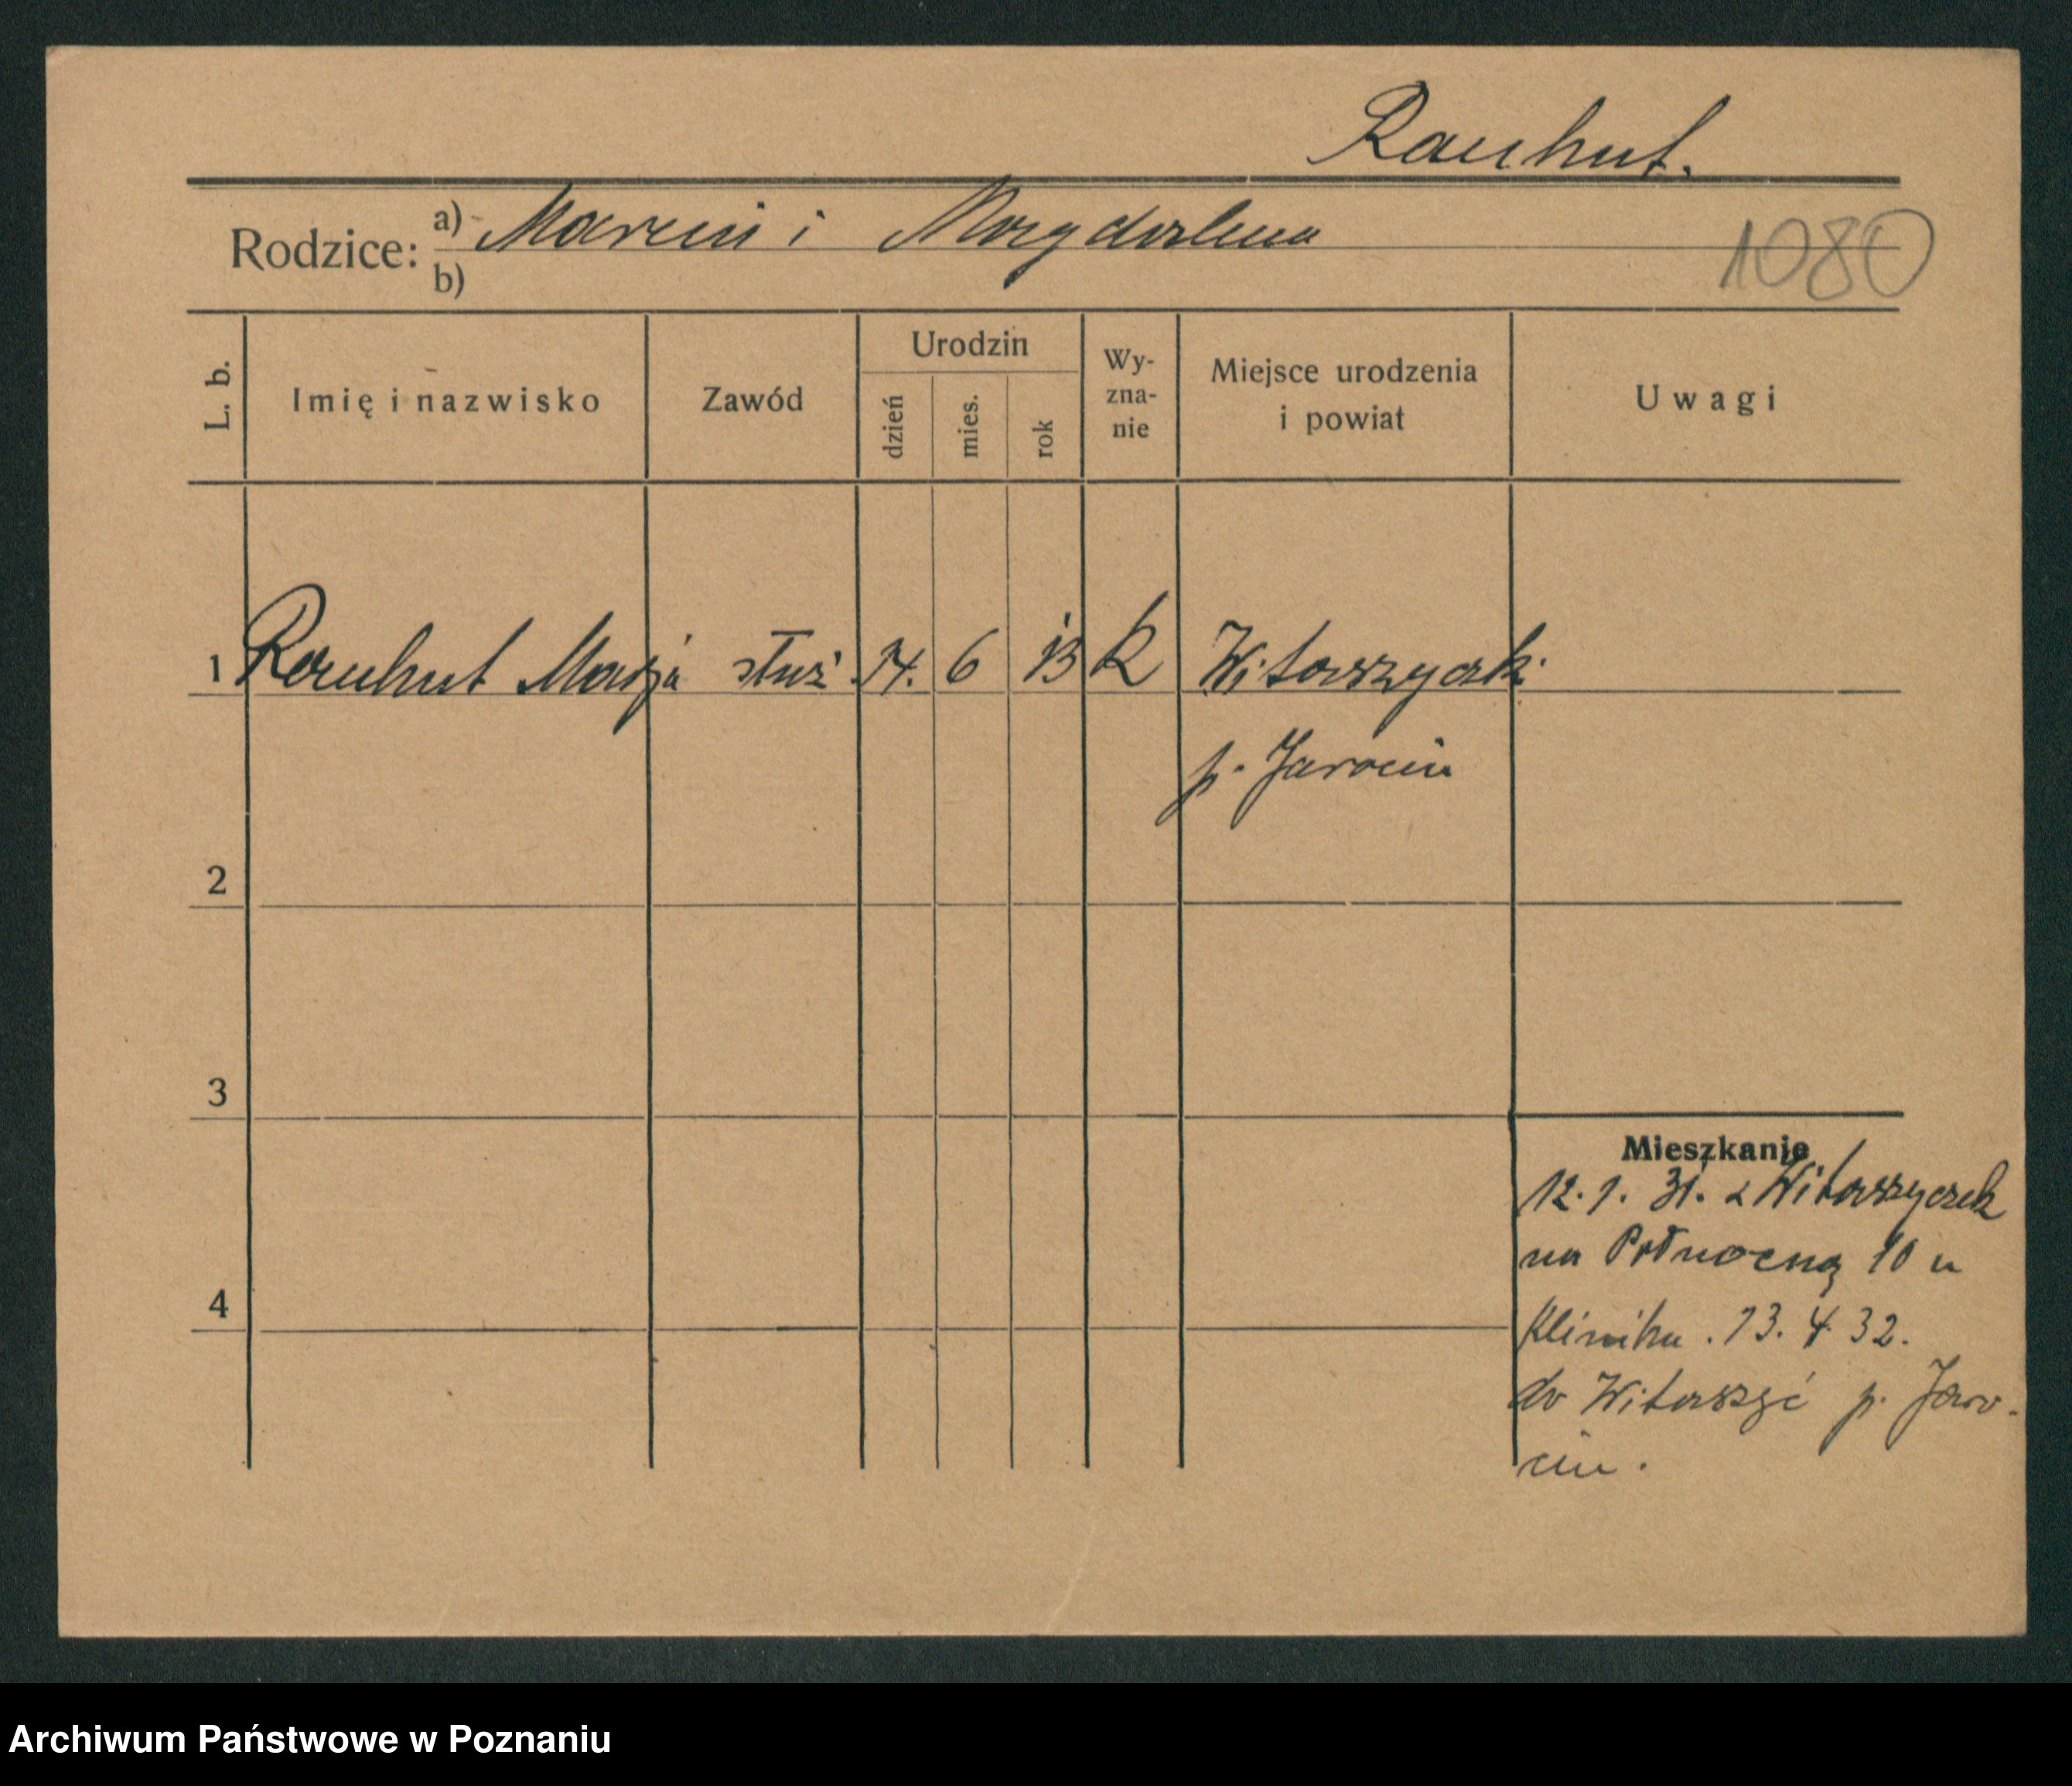 Rauhut.
Rodzice: a) Marcin i Magdalena
b)
1080
L. b. Imię i nazwisko Zawód Urodzin dzień mies. rok Wy-zna-nie Miejsce urodzenia i powiat Uwagi
1 Rauhut Marja służ. 14. 6 13 k Witaszyczki
p. Jarocin
2
3
Mieszkanie
12.1.31. z Witaszyczek
na Północną 10 u
4
Klinika. 13. 4. 32.
do Witaszyc p. Jaro-
cin.
Archiwum Państwowe w Poznaniu